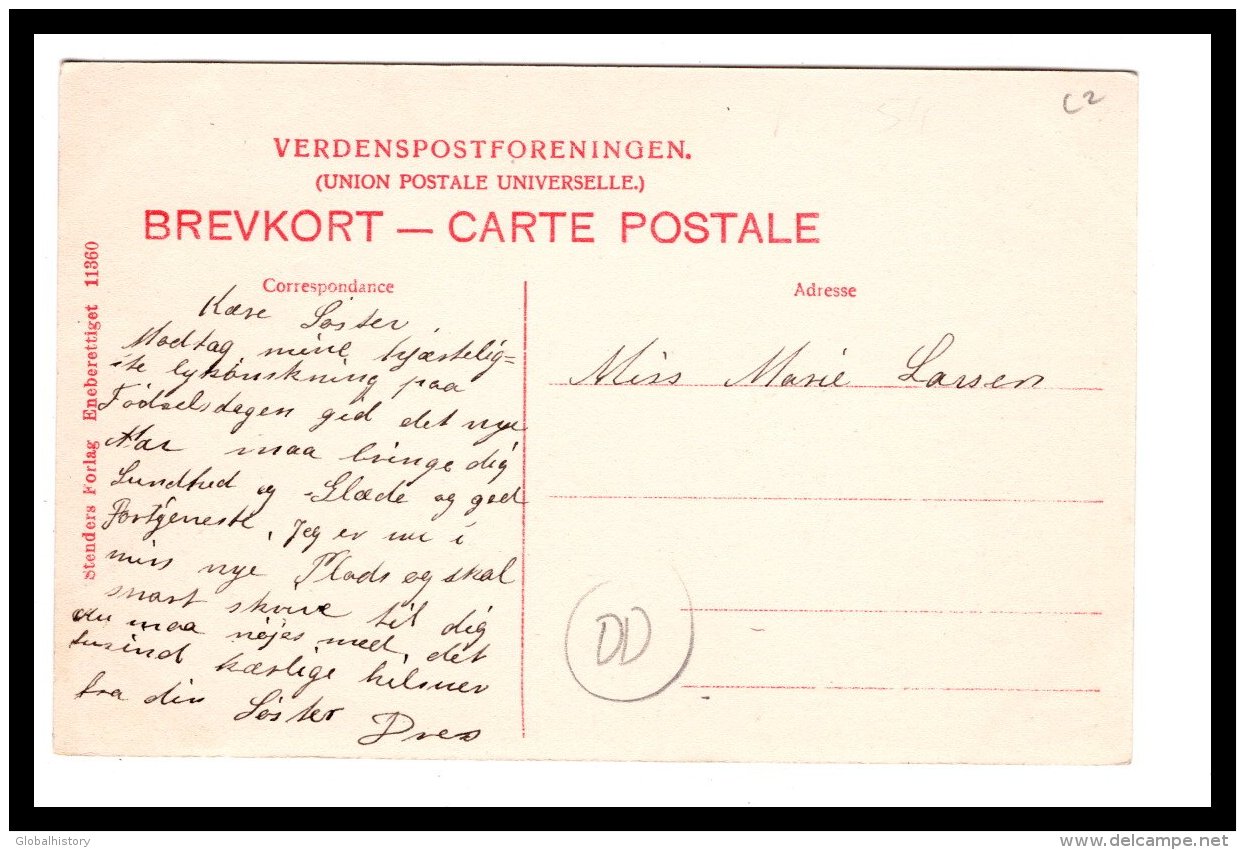 C2
VERDENSPOSTFORENINGEN.
(UNION POSTALE UNIVERSELLE.)
BREVKORT — CARTE POSTALE
Stenders Forlag Eneberettiget 11360
Correspondance
Kære Søster
Modtag mine hjærtelig=
=te lykönskning paa
Födselsdagen gid det nye
Aar maa bringe dig
Sundhed og Glæde og god
Fortjeneste. Jeg er nu i
min nye Plads og skal
snart skrive til dig
du maa nöjes med det
tusind kærlige hilsner
fra din Söster
Adresse
Miss Marie Larsen
DD
Globalhistory
www.delcampe.net